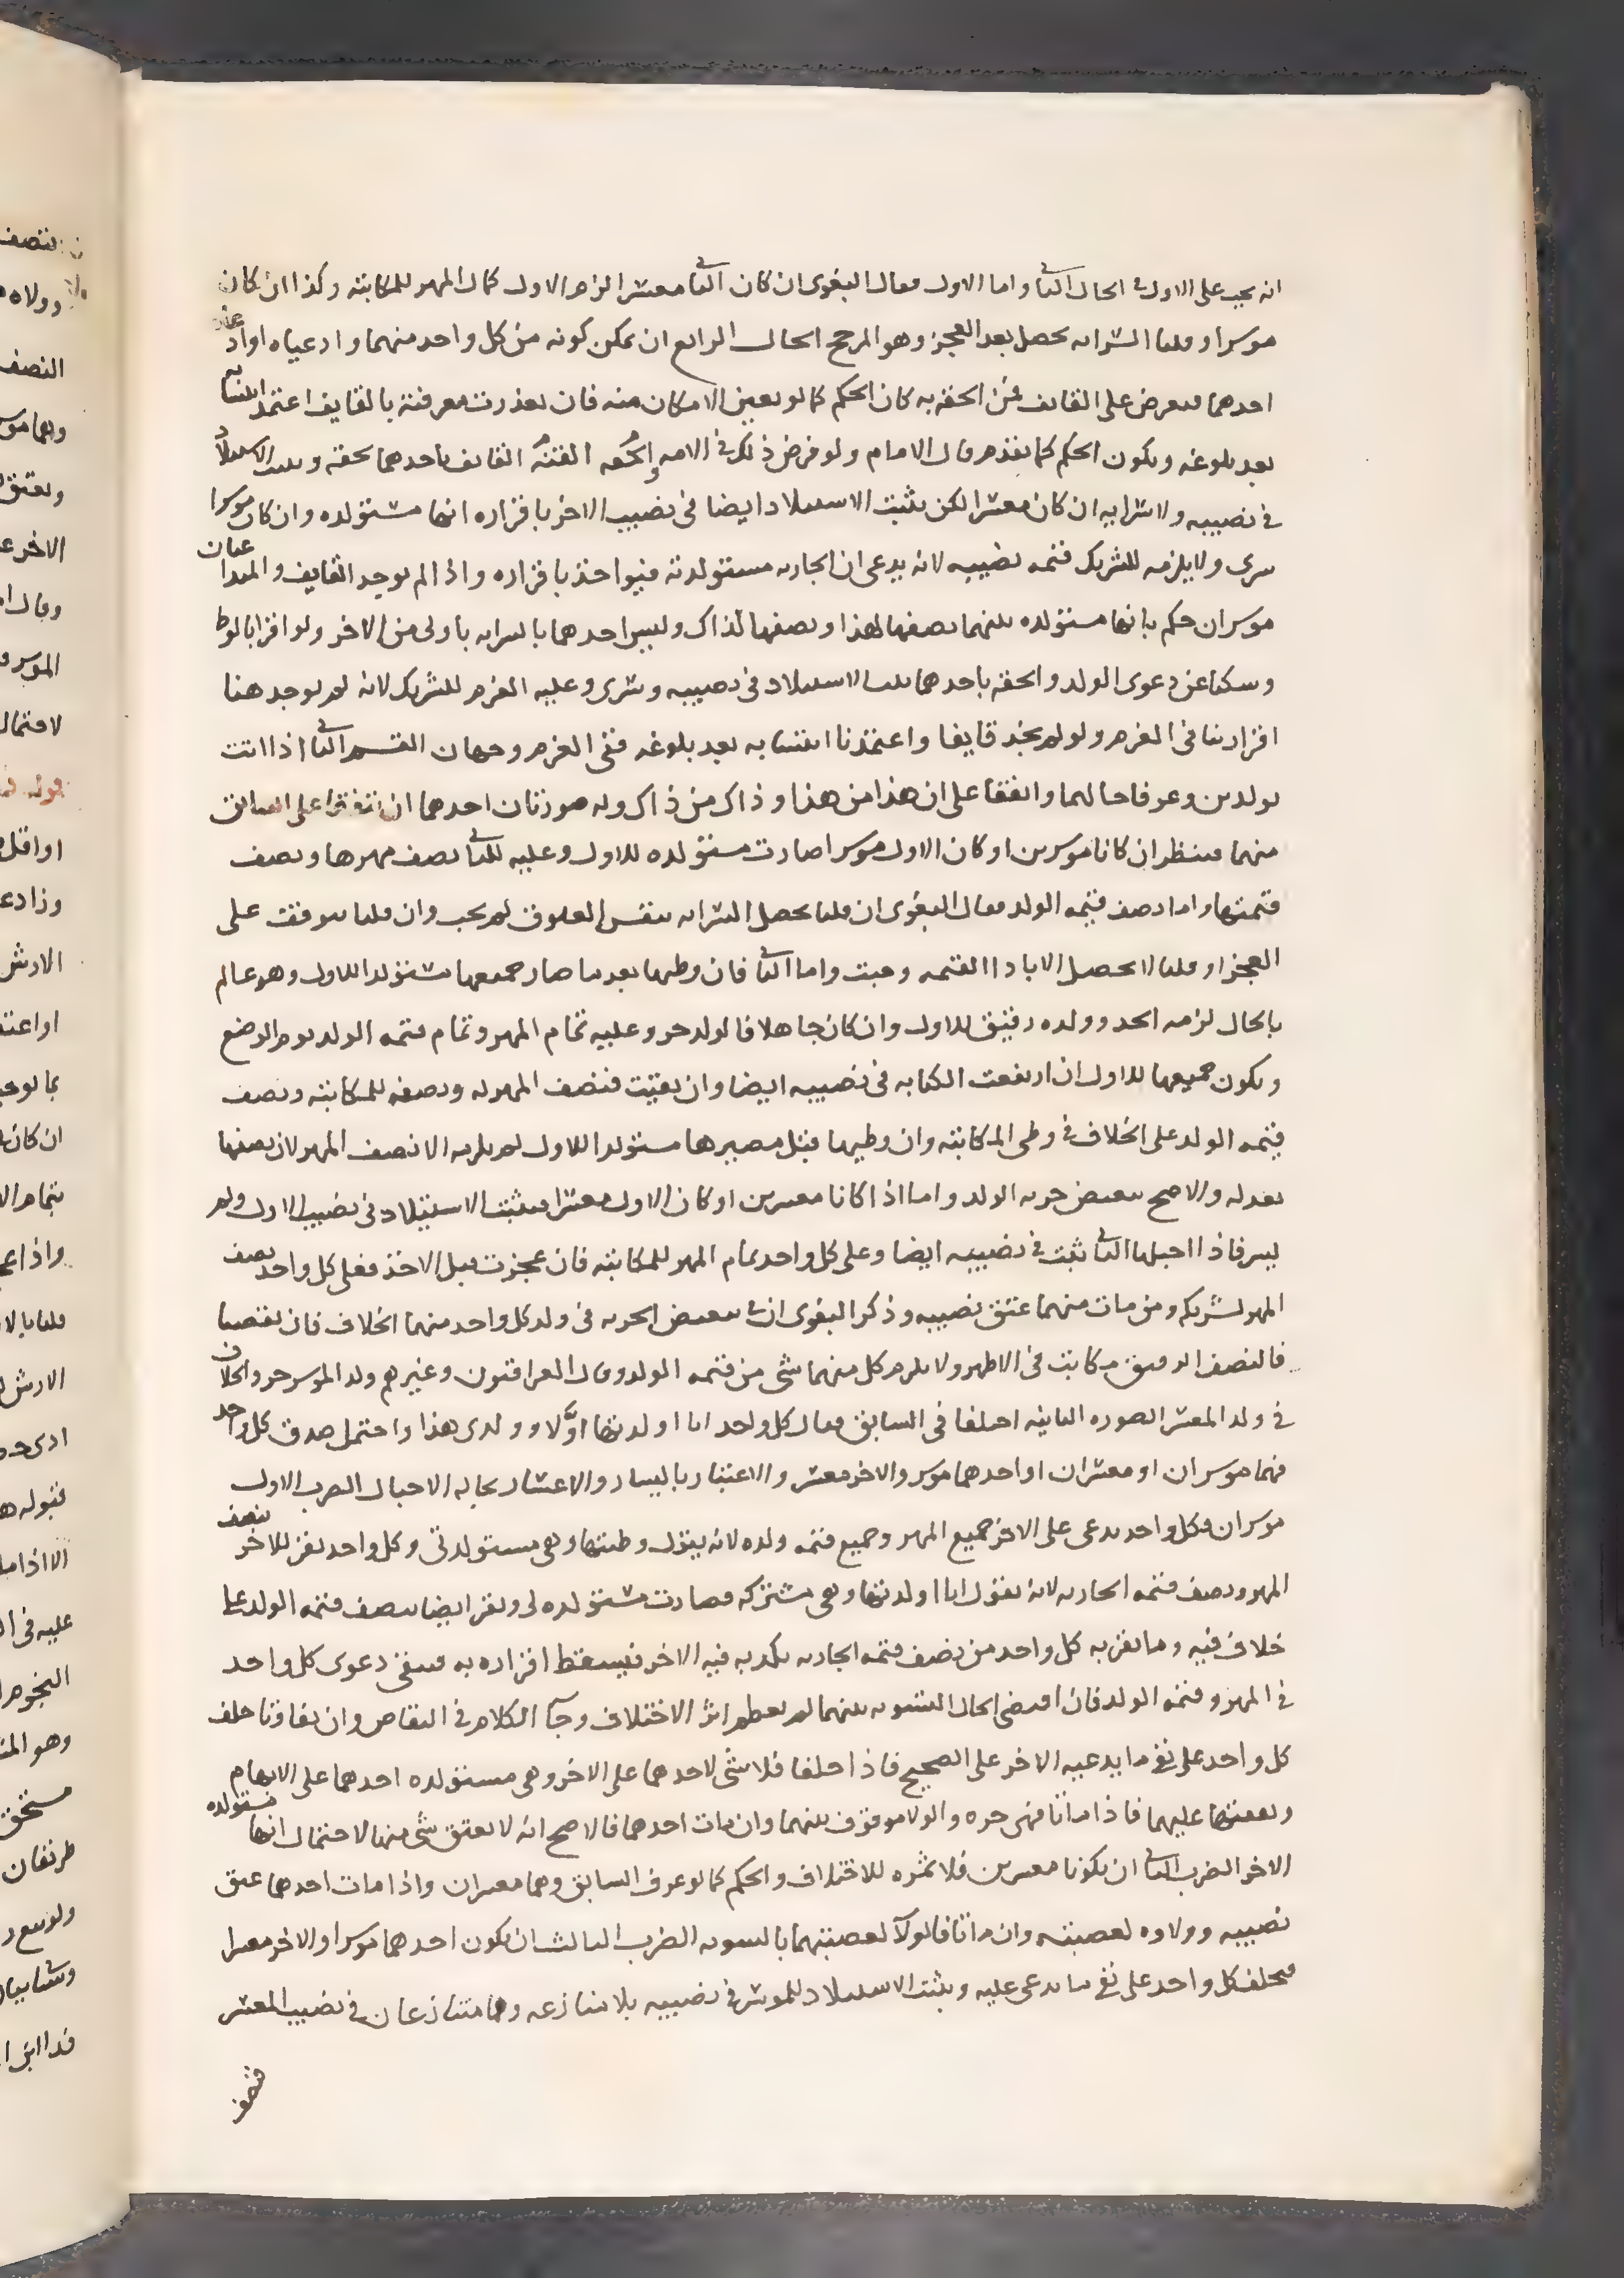 انه يجب على الاول في الحال الثاني واما الاول فقال البغوي ان كان الثاني معسرا لزم الاول كمال المهر للمكاتبة وكذا ان كان
موسرا وقلنا السراية تحصل بعد العجز وهو المرجح الحال الرابع ان يمكن كونه من كل واحد منهما وادعياه او ادعاه
احدهما فيعرض على القايف فمن الحقه به كان الحكم كما لو تعين الامكان منه فان تعذرت معرفته بالقايف اعتمد انتسابه
بعد بلوغه ويكون الحكم كما تقدم قال الامام ولو فرض ذلك في الامة القنة والحقه القايف باحدهما لحقه ويثبت الاستيلاد
في نصيبه ولا سراية ان كان معسرا لكن يثبت الاستيلاد ايضا في نصيب الاخر باقراره انها مستولده وان كان موسرا
سرى ولا يلزمه للشريك قيمة نصيبه لانه يدعي ان الجارية مستولدته فيواخذ باقراره واذا لم يوجد القايف والمتداعيان
موسران حكم بانها مستولده بينهما نصفها لهذا ونصفها لذاك وليس احدهما بالسراية باولى من الاخر ولو اقرا بالوطء
وسكتا عن دعوى الولد والحقه باحدهما ثبت الاستيلاد في نصيبه وسرى وعليه الغرم للشريك لانه لم يوجد هنا
اقرار ينافي الغرم ولو لم نجد قايفا واعتمدنا انتسابه بعد بلوغه ففي الغرم وجهان القسم الثاني اذا اتت
بولدين وعرفا حالهما واتفقا على ان هذا من هذا وذاك من ذاك وله صورتان احداهما ان يتفقا على السابق
منهما فينظر ان كانا موسرين او كان الاول موسرا صارت مستولده للاول وعليه للثاني نصف مهرها ونصف
قيمتها واما نصف قيمة الولد فقال البغوي ان قلنا تحصل السراية بنفس العلوق لم يجب وان قلنا يتوقف على
العجز او قلنا لا تحصل الا باداء القيمة وجبت واما الثاني فان وطيها بعد ما صار جميعها مستولدا للاول وهو عالم
بالحال لزمه الحد وولده رقيق للاول وان كان جاهلا فالولد حر وعليه تمام المهر وتمام قيمة الولد يوم الوضع
ويكون جميعها للاول ان ارتفعت الكتابة في نصيبه ايضا وان بقيت فنصف المهر له ونصفه للمكاتبة ونصف
قيمة الولد على الخلاف في وطي المكاتبة وان وطيها قبل مصيرها مستولدا للاول لم يلزمه الا نصف المهر لان نصفها
بعد له والاصح تبعيض حرية الولد واما اذا كانا معسرين او كان الاول معسرا فيثبت الاستيلاد في نصيب الاول ولم
يسر فاذا احبلها الثاني ثبت في نصيبه ايضا وعلى كل واحد تمام المهر للمكاتبة فان عجزت قبل الاخذ فعلى كل واحد نصف
المهر لشريكه ومن مات منهما عتق نصيبه وذكر البغوي ان في تبعيض الحرية في ولد كل واحد منهما الخلاف فان بعضنا
فالنصف الرقيق مكاتب في الاظهر ولا يلزم كل منهما شي من قيمة الولد وقال العراقيون وغيرهم ولد الموسر حر والخلاف
في ولد المعسر الصورة الثانية اختلفا في السابق فقال كل واحد انا اولدتها اولا وولدي هذا واحتمل صدق كل واحد
فهما موسران او معسران او احدهما موسر والاخر معسر والاعتبار باليسار والاعسار بحالة الاحبال الضرب الاول
موسران فكل واحد يدعي على الاخر جميع المهر وجميع قيمة ولده لانه يقول وطئتها وهي مستولدتي وكل واحد يقر للاخر بنصف
المهر ونصف قيمة الجارية لانه يقول انا اولدتها وهي مشتركه فصارت مستولده لي ويقر ايضا بنصف قيمة الولد على
خلاف فيه وما يقر به كل واحد من نصف قيمة الجارية يكذبه فيه الاخر فيسقط اقراره به فيبقى دعوى كل واحد
في المهر وقيمة الولد فان اقتضى الحال التسوية بينهما لم يعظم اثر الاختلاف وجاء الكلام في التقاص وان تفاوتا حلف
كل واحد على نفي ما يدعيه الاخر على الصحيح فاذا حلفا فلا شي لاحدهما على الاخر وهي مستولده احدهما على الابهام
ونفقتها عليهما فاذا ماتا فهي حره والولا موقوف بينهما وان مات احدهما فالاصح انه لا يعتق شي منها لاحتمال انها مستولده
الاخر الضرب الثاني ان يكونا معسرين فلا ثمره للاختلاف والحكم كما لو عرف السابق وهما معسران واذا مات احدهما عتق
نصيبه وولاوه لعصبته وان ماتا فالولاء لعصبتهما بالسوية الضرب الثالث ان يكون احدهما موسرا والاخر معسرا
فيحلف كل واحد على نفي ما يدعي عليه ويثبت الاستيلاد للموسر في نصيبه بلا منازعه وهما متنازعان في نصيب المعسر
فنصف